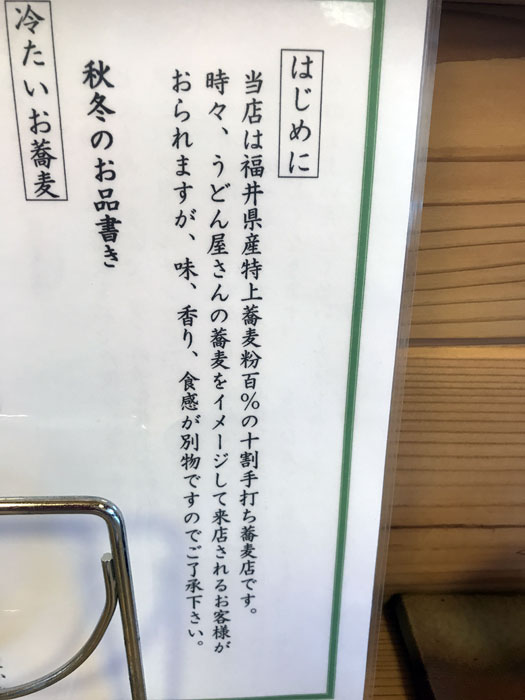 はじめに
当店は福井県産特上蕎麦粉百%の十割手打ち蕎麦店です。
時々、うどん屋さんの蕎麦をイメージして来店されるお客様が
おられますが、味、香り、食感が別物ですのでご了承下さい。
秋冬のお品書き
冷たいお蕎麦